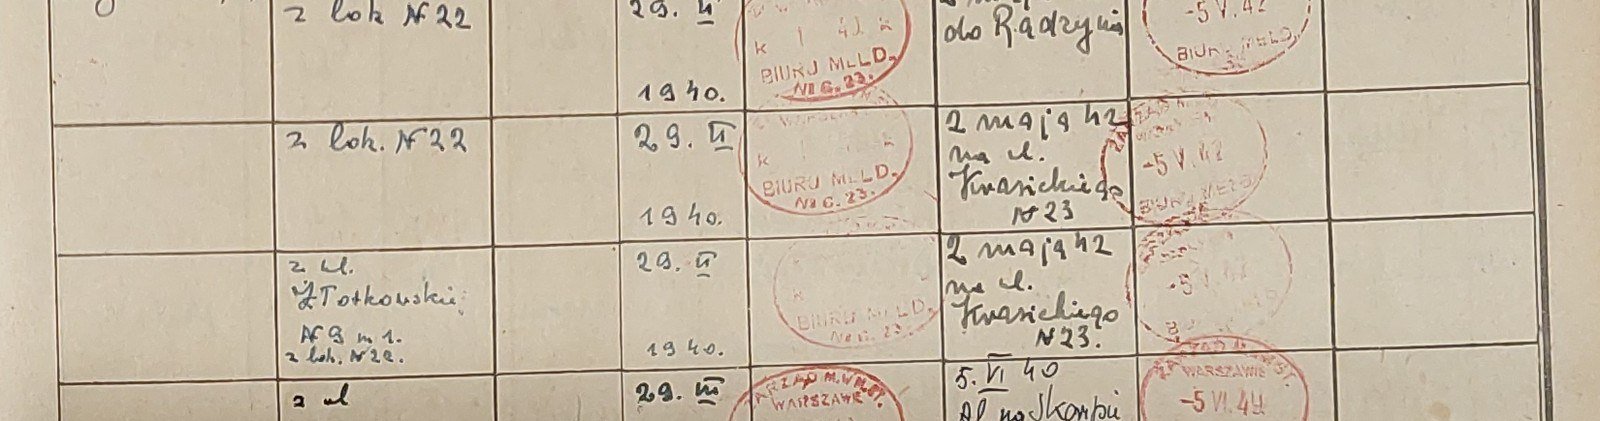 z lok N 22
29. II
1940.
BIURO MELD.
No G. 23.
do Radzynia
-5 V. 42
BIURO MELD.
z lok. N 22
29. II
1940.
BIURO MELD.
No G. 23.
2 maja 42
na ul.
Krasickiego
N 23
-5 V. 42
BIURO MELD
z ul.
N 9 m 1.
z lok. N 22.
29. II
1940.
BIURO MELD.
No G. 23.
2 maja 42
na ul.
Krasickiego
N 23.
-5 V. 42
z ul
29. III
ZARZĄD M.
WARSZAWIE
5. VI 40
Al na Skarpie
ZARZĄD
WARSZAWIE
-5 VI. 4